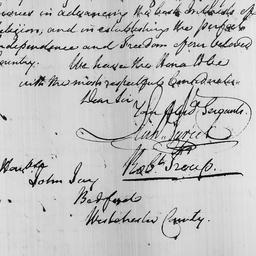 in advancing the best interests of
religion, and in establishing the perfect
independence and freedom of our beloved
Country. We have the Hono to be
with the most respectful Consideration
Dear Sir
Your Obedt Servants.
Robt Troup.
Honble
John Jay
Bedford
Westchester County.